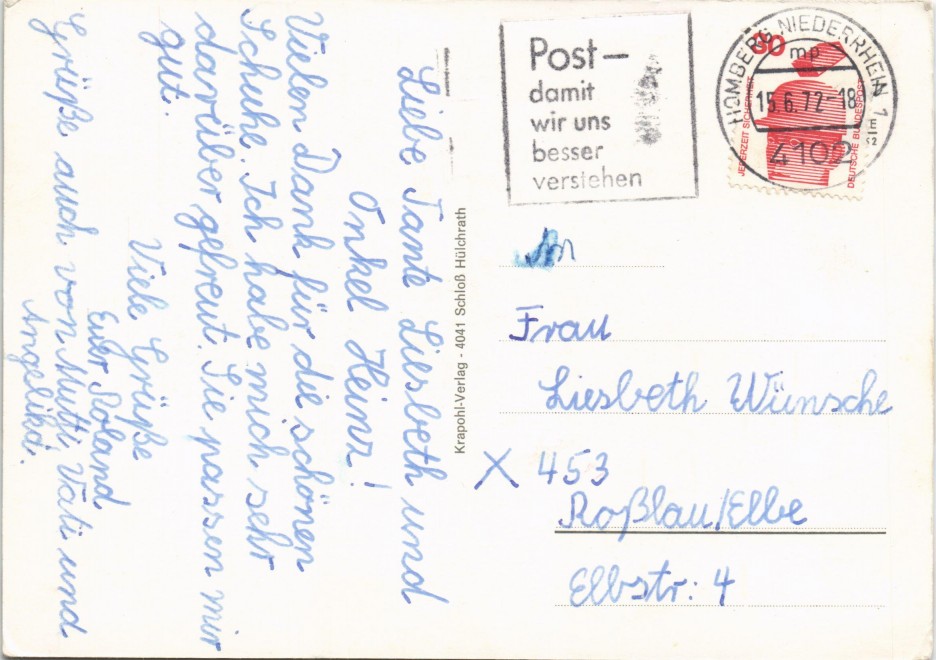 Liebe Tante Liesbeth und
Onkel Heinz!
Vielen Dank für die schönen
Schuhe. Ich habe mich sehr
darüber gefreut. Sie passen mir
gut.
Viele Grüße
Euer Roland
Grüße auch von Mutti, Vati und
Angelika.
Krapohl-Verlag - 4041 Schloß Hülchrath
Post –
damit
wir uns
besser
verstehen
HOMBERG, NIEDERRHEIN 1
mp
15.6.72-18
4102
30
JEDERZEIT SICHERHEIT
DEUTSCHE BUNDESPOST
An
Frau
Liesbeth Wünsche
X 453
Roßlau/Elbe
Elbstr: 4